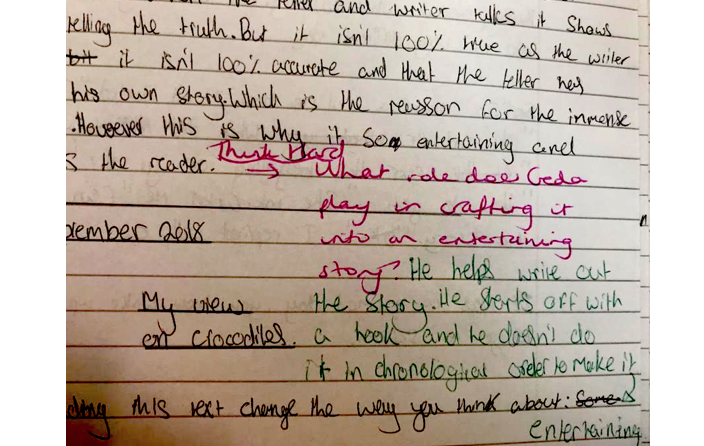 the teller and writer talks it shows
telling the truth. But it isn't 100% true as the writer
but it isn't 100% accurate and that the teller has
his own story. Which is the reasson for the immense
. However this is why it so entertaining and
s the reader. Think Hard
→ What role does Ceda
play in crafting it
vember 2018 into an entertaining
story? He helps write out
My view the story. He starts off with
on crocodiles. a hook and he doesn't do
it in chronological order to make it
ding this text change the way you think about: Some
entertaining.